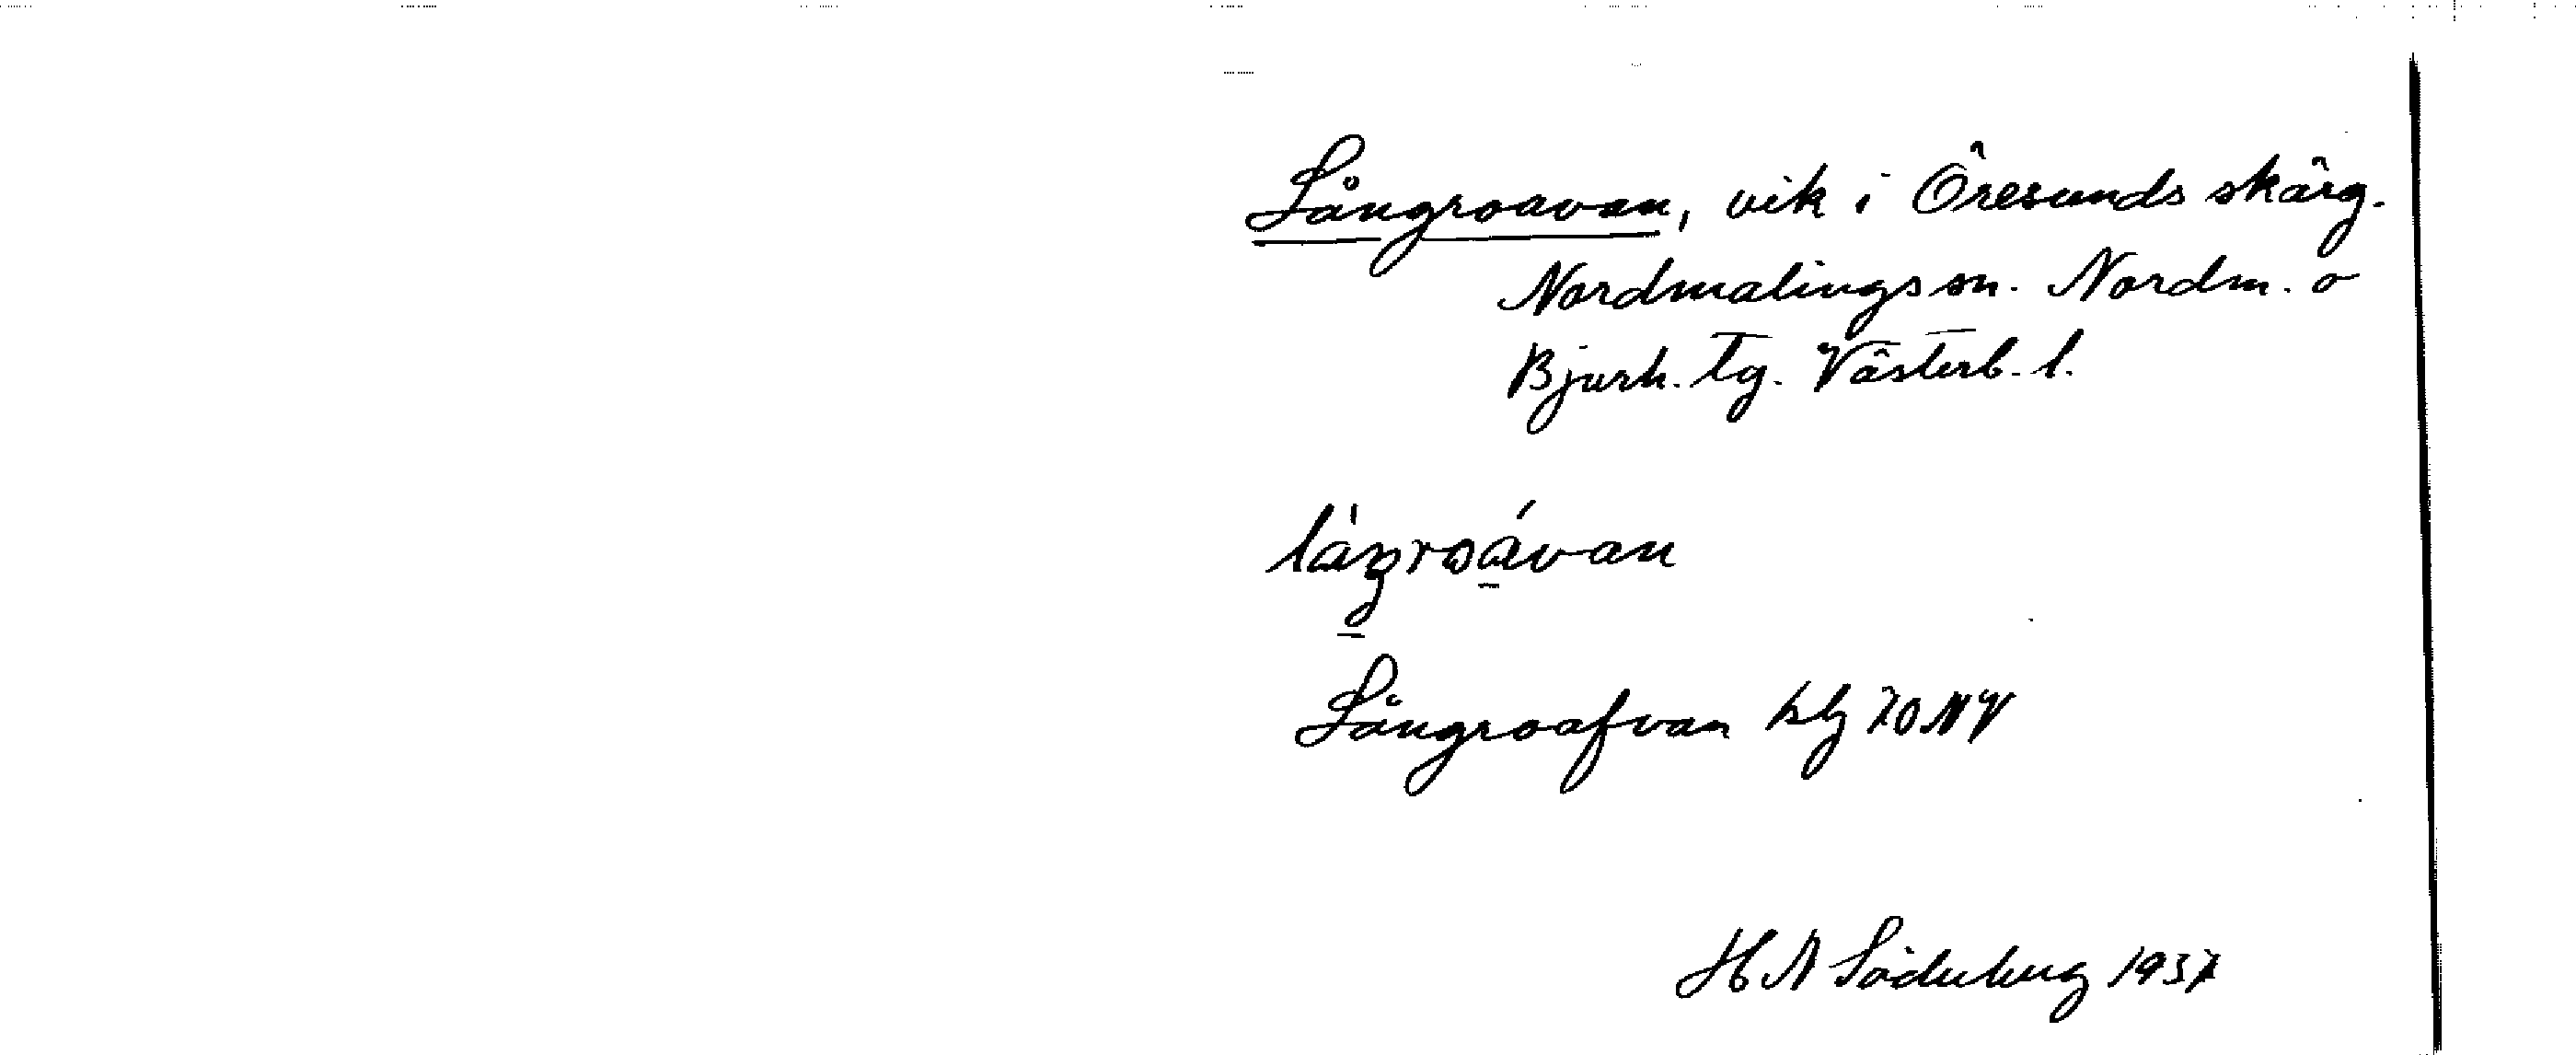 Långroavan, vik i Öresunds skärg.
Nordmalings sn. Nordm. o
Bjurh. tg. Västerb. l.
Långroafvan 70 NV
H N Söderberg 1937